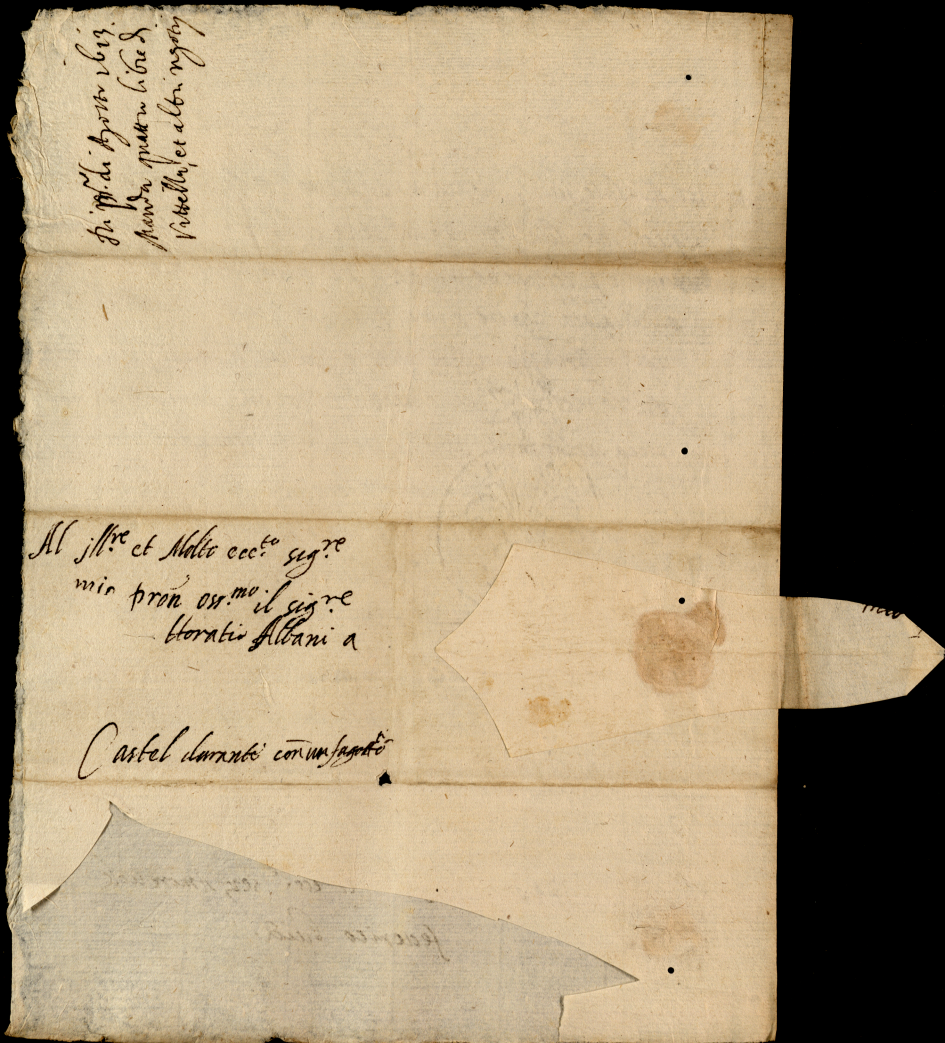 di Agosto 1613
Manda quattro libre di
Vitella, et altri
Al jll.re et Molto ecc.to sig.re
mio pron oss.mo il sig.re
Horatio Albani a
Castel durante con un fagotto